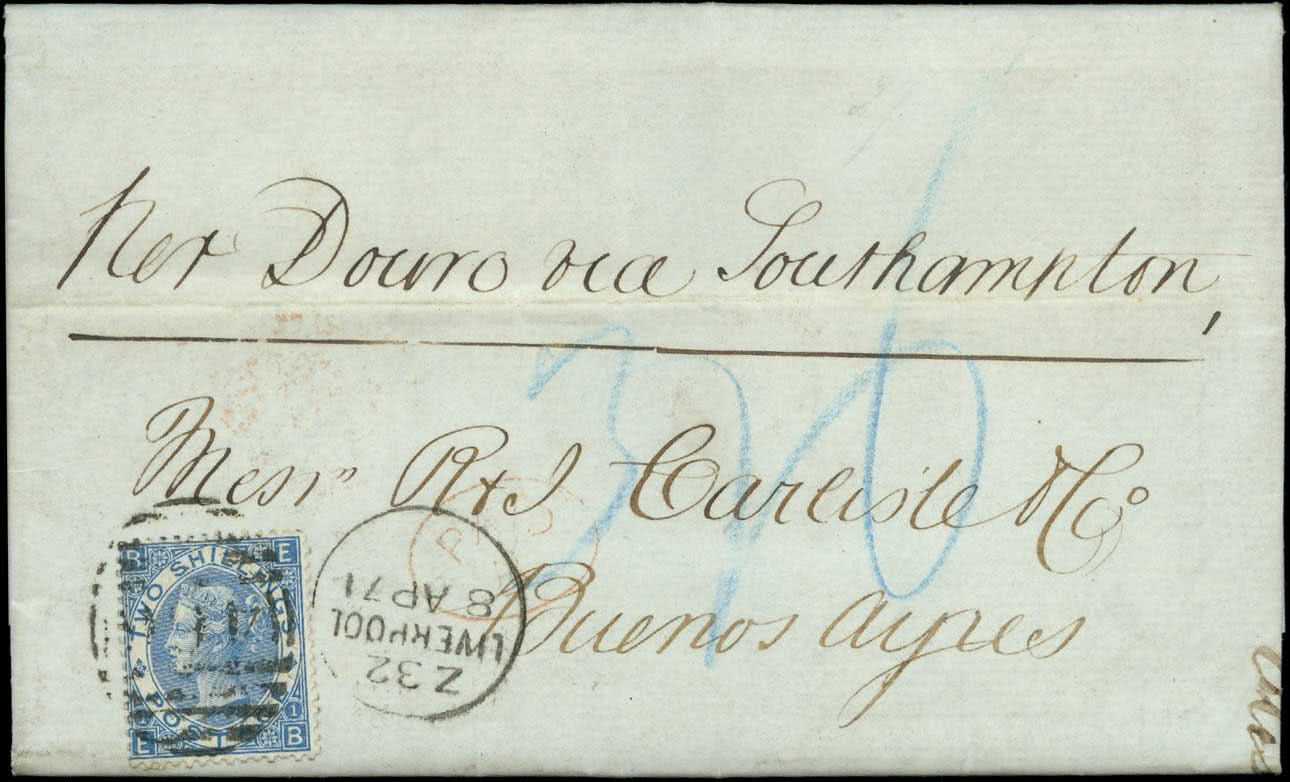 Per Douro via Southampton,
Messrs R & J Carlisle & Co
Buenos Ayres
Z 32
LIVERPOOL
8 AP 71
B E
TWO SHILLINGS
POSTAGE
1
E B